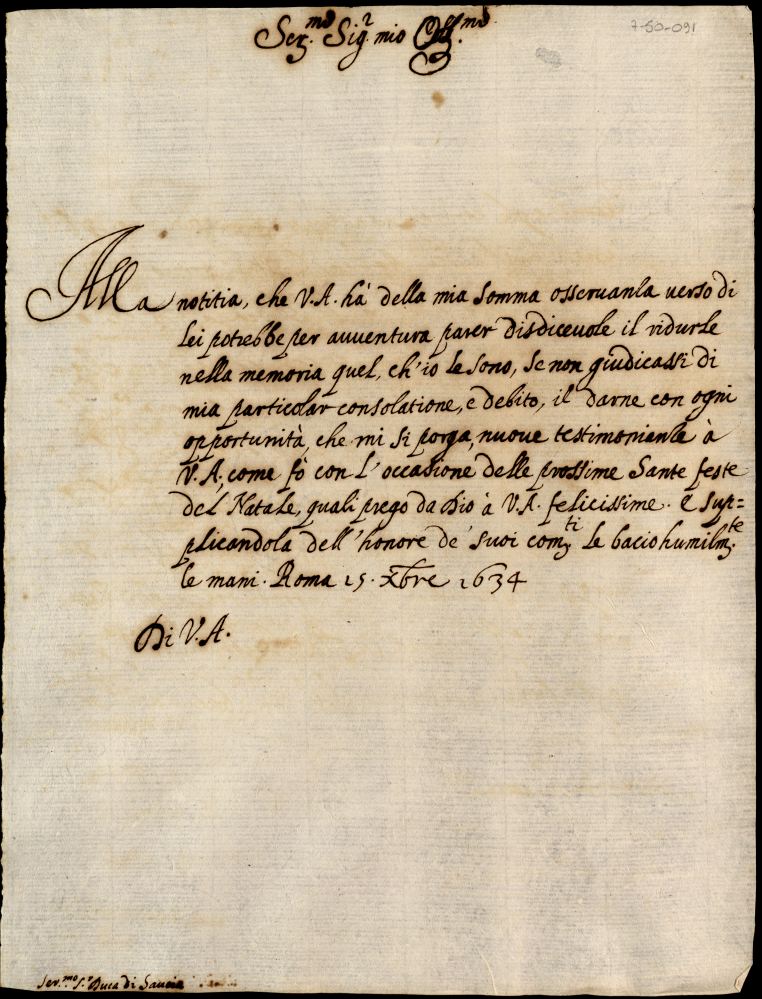 7-50-091
Ser.mo Sig.r mio Oss.mo
Alla notitia, che V.A. hà della mia somma osseruanza uerso di
Lei potrebbe per auuentura parer disdiceuole il ridurle
nella memoria quel, ch'io le sono, se non giudicassi di
mia particolar consolatione, e debito, il darne con ogni
opportunità, che mi si porga, nuoue testimonienze à
V.A., come fò con l'occasione delle prossime Sante feste
del Natale, quali prego da Dio à V.A. felicissime. E sup=
plicandola dell'honore de' suoi com.ti le bacio humilm.te
le mani. Roma 15. Xbre 1634
Di V.A.
Ser.mo S.r Duca di Sauoia